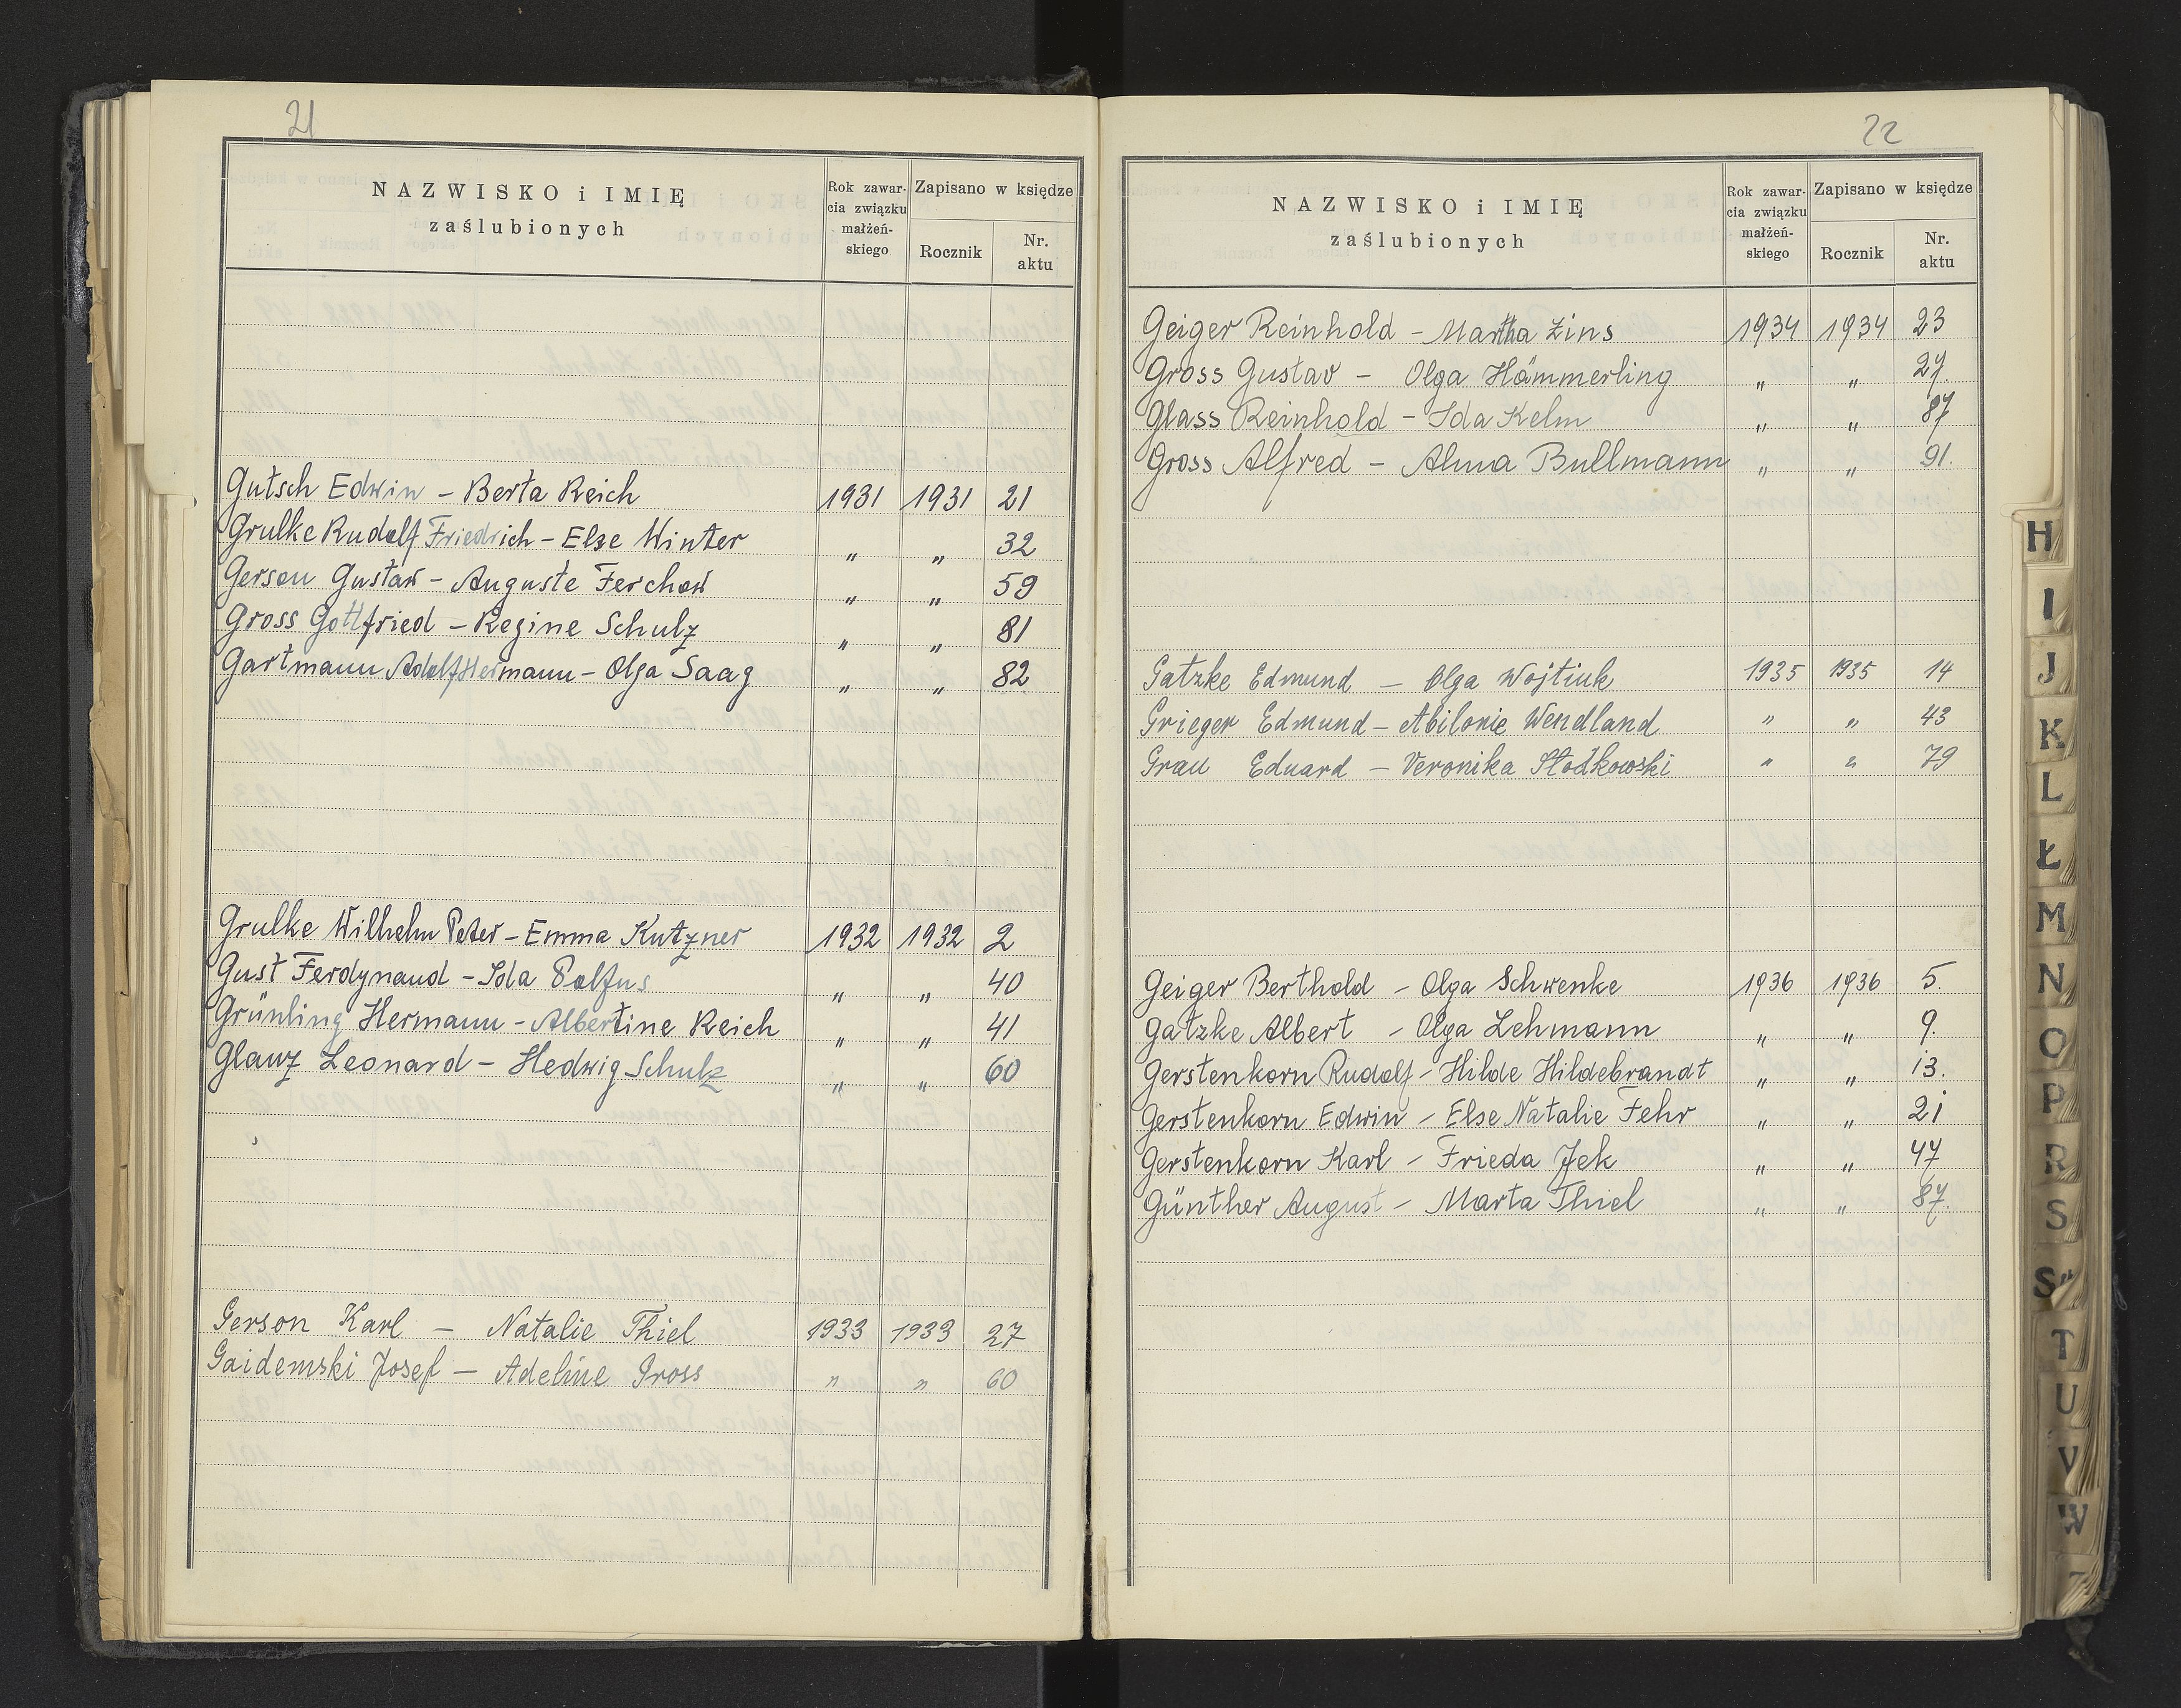 21
NAZWISKO i IMIĘ
zaślubionych
Rok zawar-
cia związku
małżeń-
skiego
Zapisano w księdze
Rocznik
Nr.
aktu
Gutsch Edwin – Berta Reich 1931 1931 21
Grulke Rudolf Friedrich – Else Winter " " 32
Gerson Gustaw – Auguste Ferchow " " 59
Gross Gottfried – Regine Schulz " " 81
Gartmann Adolf Hermann – Olga Saag " " 82
Grulke Wilhelm Peter – Emma Kutzner 1932 1932 2
Gust Ferdynand – Ida " " 40
Grünling Hermann – Albertine Reich " " 41
Glanz Leonard – Hedwig Schulz " " 60
Gerson Karl – Natalie Thiel 1933 1933 27
Gaidemski Josef – Adeline Gross " " 60
22
NAZWISKO i IMIĘ
zaślubionych
Rok zawar-
cia związku
małżeń-
skiego
Zapisano w księdze
Rocznik
Nr.
aktu
Geiger Reinhold – Martha Zins 1934 1934 23
Gross Gustav – Olga Hämmerling " " 27.
Glass Reinhold – Ida Kelm " " 87
Gross Alfred – Alma Bullmann " " 91.
Gatzke Edmund – Olga Wojtiuk 1935 1935 14
Grieger Edmund – Abilonie Wendland " " 43
Grau Eduard – Veronika Słodkowski " " 79
Geiger Berthold – Olga Schwenke 1936 1936 5.
Gatzke Albert – Olga Lehmann " " 9.
Gerstenkorn Rudolf – Hilde Hildebrandt " " 13.
Gerstenkorn Edwin – Else Natalie Fehr " " 21
Gerstenkorn Karl – Frieda Jek " " 47
Günther August – Marta Thiel " " 87.
H
I
J
K
L
Ł
M
N
O
P
R
S
Ś
T
U
V
W
Z